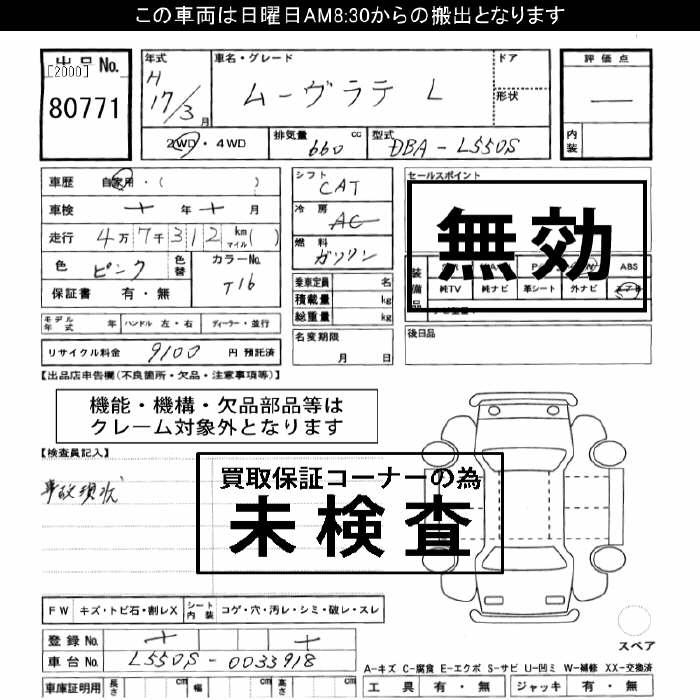 この車両は日曜日AM8:30からの搬出となります
出品No.
[2000]
80771
年式
H
17/3月
車名・グレード
ムーヴラテ L
ドア
形状
評価点
―
内装
2WD・4WD
排気量 cc
660
型式
DBA - L550S
車歴 自家用・( )
車検 年 月
走行 4万7千312 km マイル( )
色 ピンク
色替
カラーNo.
T16
保証書 有・無
シフト
CAT
冷房
AC
燃料
ガソリン
乗車定員 名
積載量 kg
総重量 kg
セールスポイント
無効
装備品
ABS
純TV 純ナビ 革シート 外ナビ
モデル年式 年 ハンドル 左・右 ディーラー・並行
リサイクル料金 9100 円 預託済
名変期限
月 日
後日品
【出品店申告欄(不良箇所・欠品・注意事項等)】
機能・機構・欠品部品等は
クレーム対象外となります
【検査員記入】
事故現状
買取保証コーナーの為
未検査
FW キズ・トビ石・割レX シート内装 コゲ・穴・汚レ・シミ・破レ・スレ
登録No.
車台No. L550S - 0033918
車庫証明用 長さ cm 幅 cm 高さ cm
スペア
A-キズ C-腐食 E-エクボ S-サビ U-凹ミ W-補修 XX-交換済
工具 有・無 ジャッキ 有・無